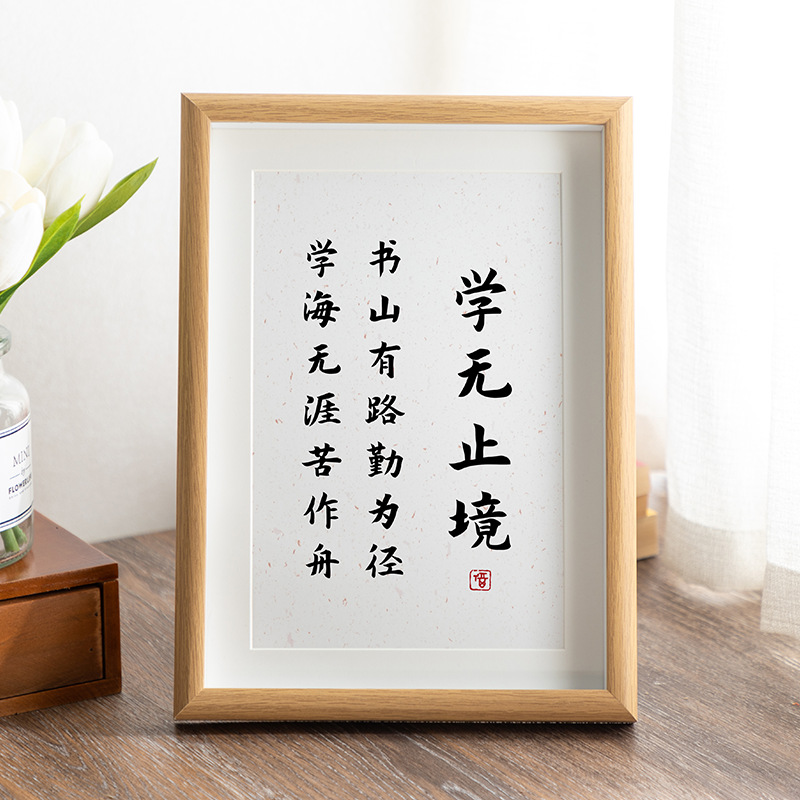 学无止境
书山有路勤为径
学海无涯苦作舟